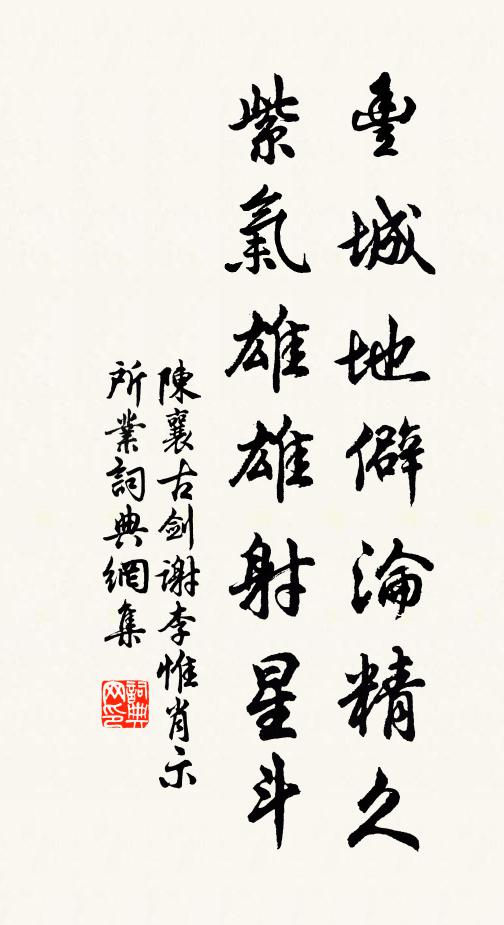 豊城地僻淪精久
紫氣雄雄射星斗
陳襄古劍謝李惟肖示
所業詞典網集
詞典
网印